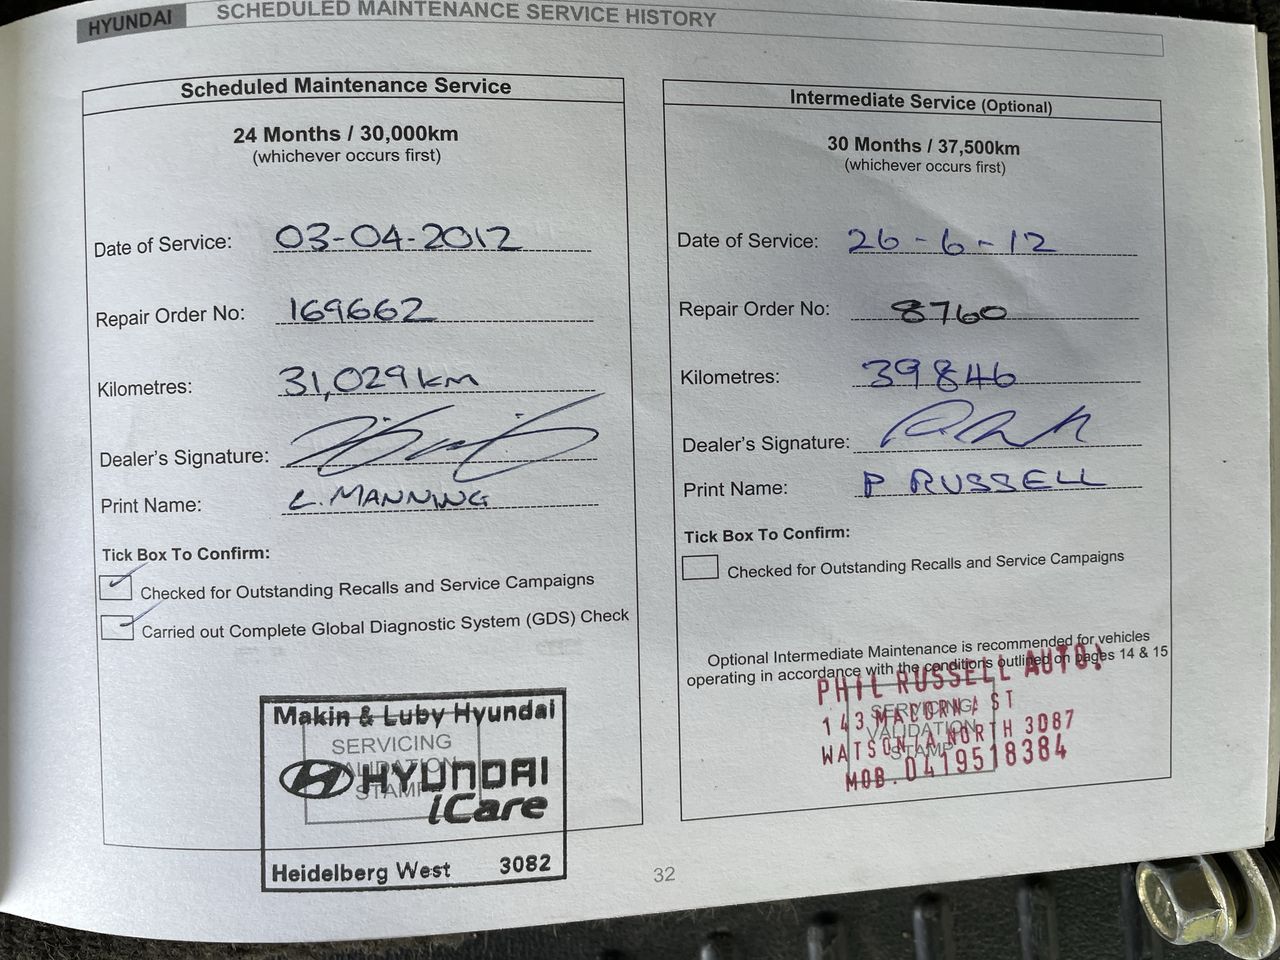 HYUNDAI SCHEDULED MAINTENANCE SERVICE HISTORY
Scheduled Maintenance Service
24 Months / 30,000km
(whichever occurs first)
Date of Service: 03-04-2012
Repair Order No: 169662
Kilometres: 31,029km
Dealer's Signature:
Print Name: L. MANNING
Tick Box To Confirm:
Checked for Outstanding Recalls and Service Campaigns
Carried out Complete Global Diagnostic System (GDS) Check
Makin & Luby Hyundai
SERVICING
VALIDATION
STAMP
HYUNDAI
iCare
Heidelberg West 3082
Intermediate Service (Optional)
30 Months / 37,500km
(whichever occurs first)
Date of Service: 26-6-12
Repair Order No: 8760
Kilometres: 39846
Dealer's Signature:
Print Name: P RUSSELL
Tick Box To Confirm:
Checked for Outstanding Recalls and Service Campaigns
Optional Intermediate Maintenance is recommended for vehicles
operating in accordance with the conditions outlined on pages 14 & 15
PHIL RUSSELL AUTO!
SERVICING
VALIDATION
STAMP
143 ST
NORTH 3087
MOB. 0419518384
32